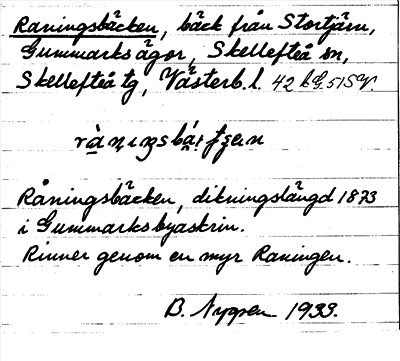 Raningsbäcken, bäck från Stortjärn,
Gummarks ägor, Skellefteå sn,
Skellefteå tg, Västerb. l. 42
Råningsbäcken, dikningslängd 1873
i Gummarksbyaskrin.
Rinner genom en myr Raningen.
B. Nygren 1933.